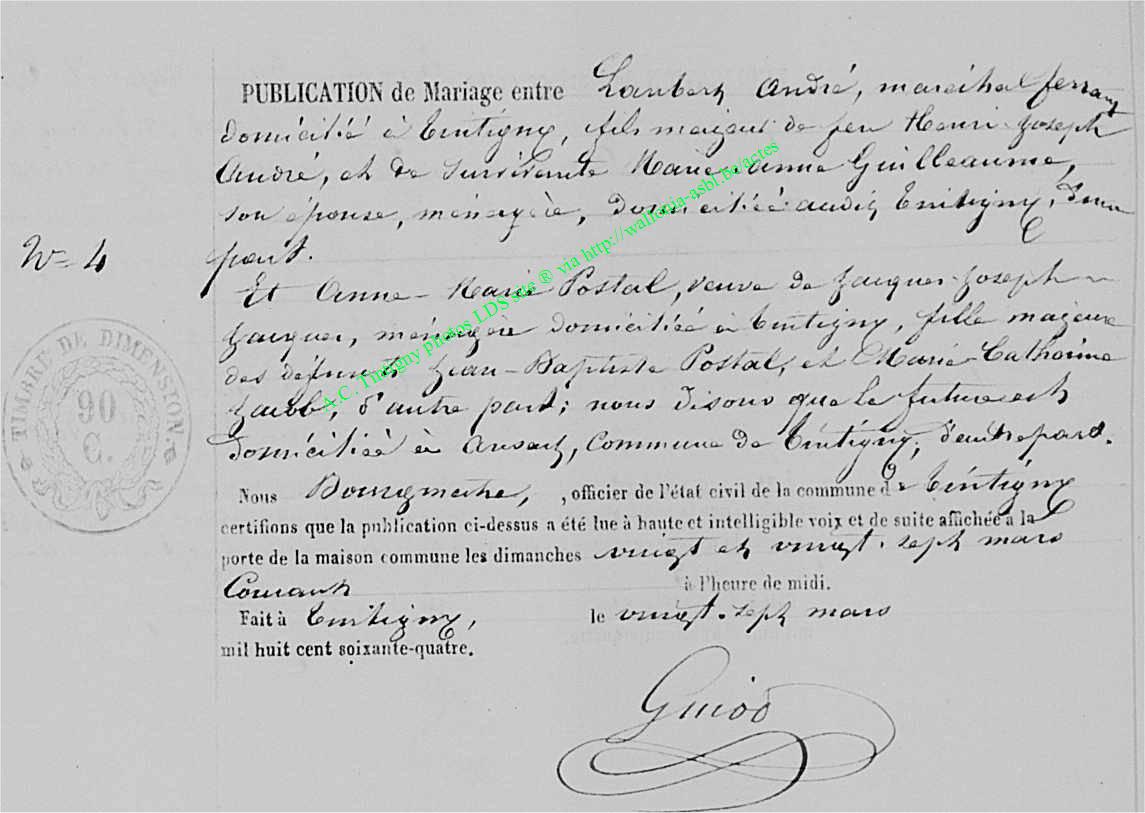 PUBLICATION de Mariage entre Lambert André, maréchal ferrant
domicilié à Tintigny, fils majeur de feu Henri-Joseph
André, et de survivante Marie-Anne Guilleaume,
son épouse, ménagère, domiciliée audit Tintigny, d'une
N° 4
part.
Et Anne-Marie Postal, veuve de Jacques-Joseph
Jacques, ménagère domiciliée à Tintigny, fille majeure
des défunts Jean-Baptiste Postal, et Marie-Catherine
d'autre part; nous disons que la future est
domiciliée à Ansart, Commune de Tintigny, d'autre part.
TIMBRE DE DIMENSION.
90
C.
Nous Bourgmestre, , officier de l'état civil de la commune de Tintigny
certifions que la publication ci-dessus a été lue à haute et intelligible voix et de suite affichée à la
porte de la maison commune les dimanches vingt et vingt-sept mars
Courant à l'heure de midi.
Fait à Tintigny, le vingt-sept mars
mil huit cent soixante-quatre.
Guiod
A.C. Tintigny photos LDS site ® via http://wallonia-asbl.be/actes